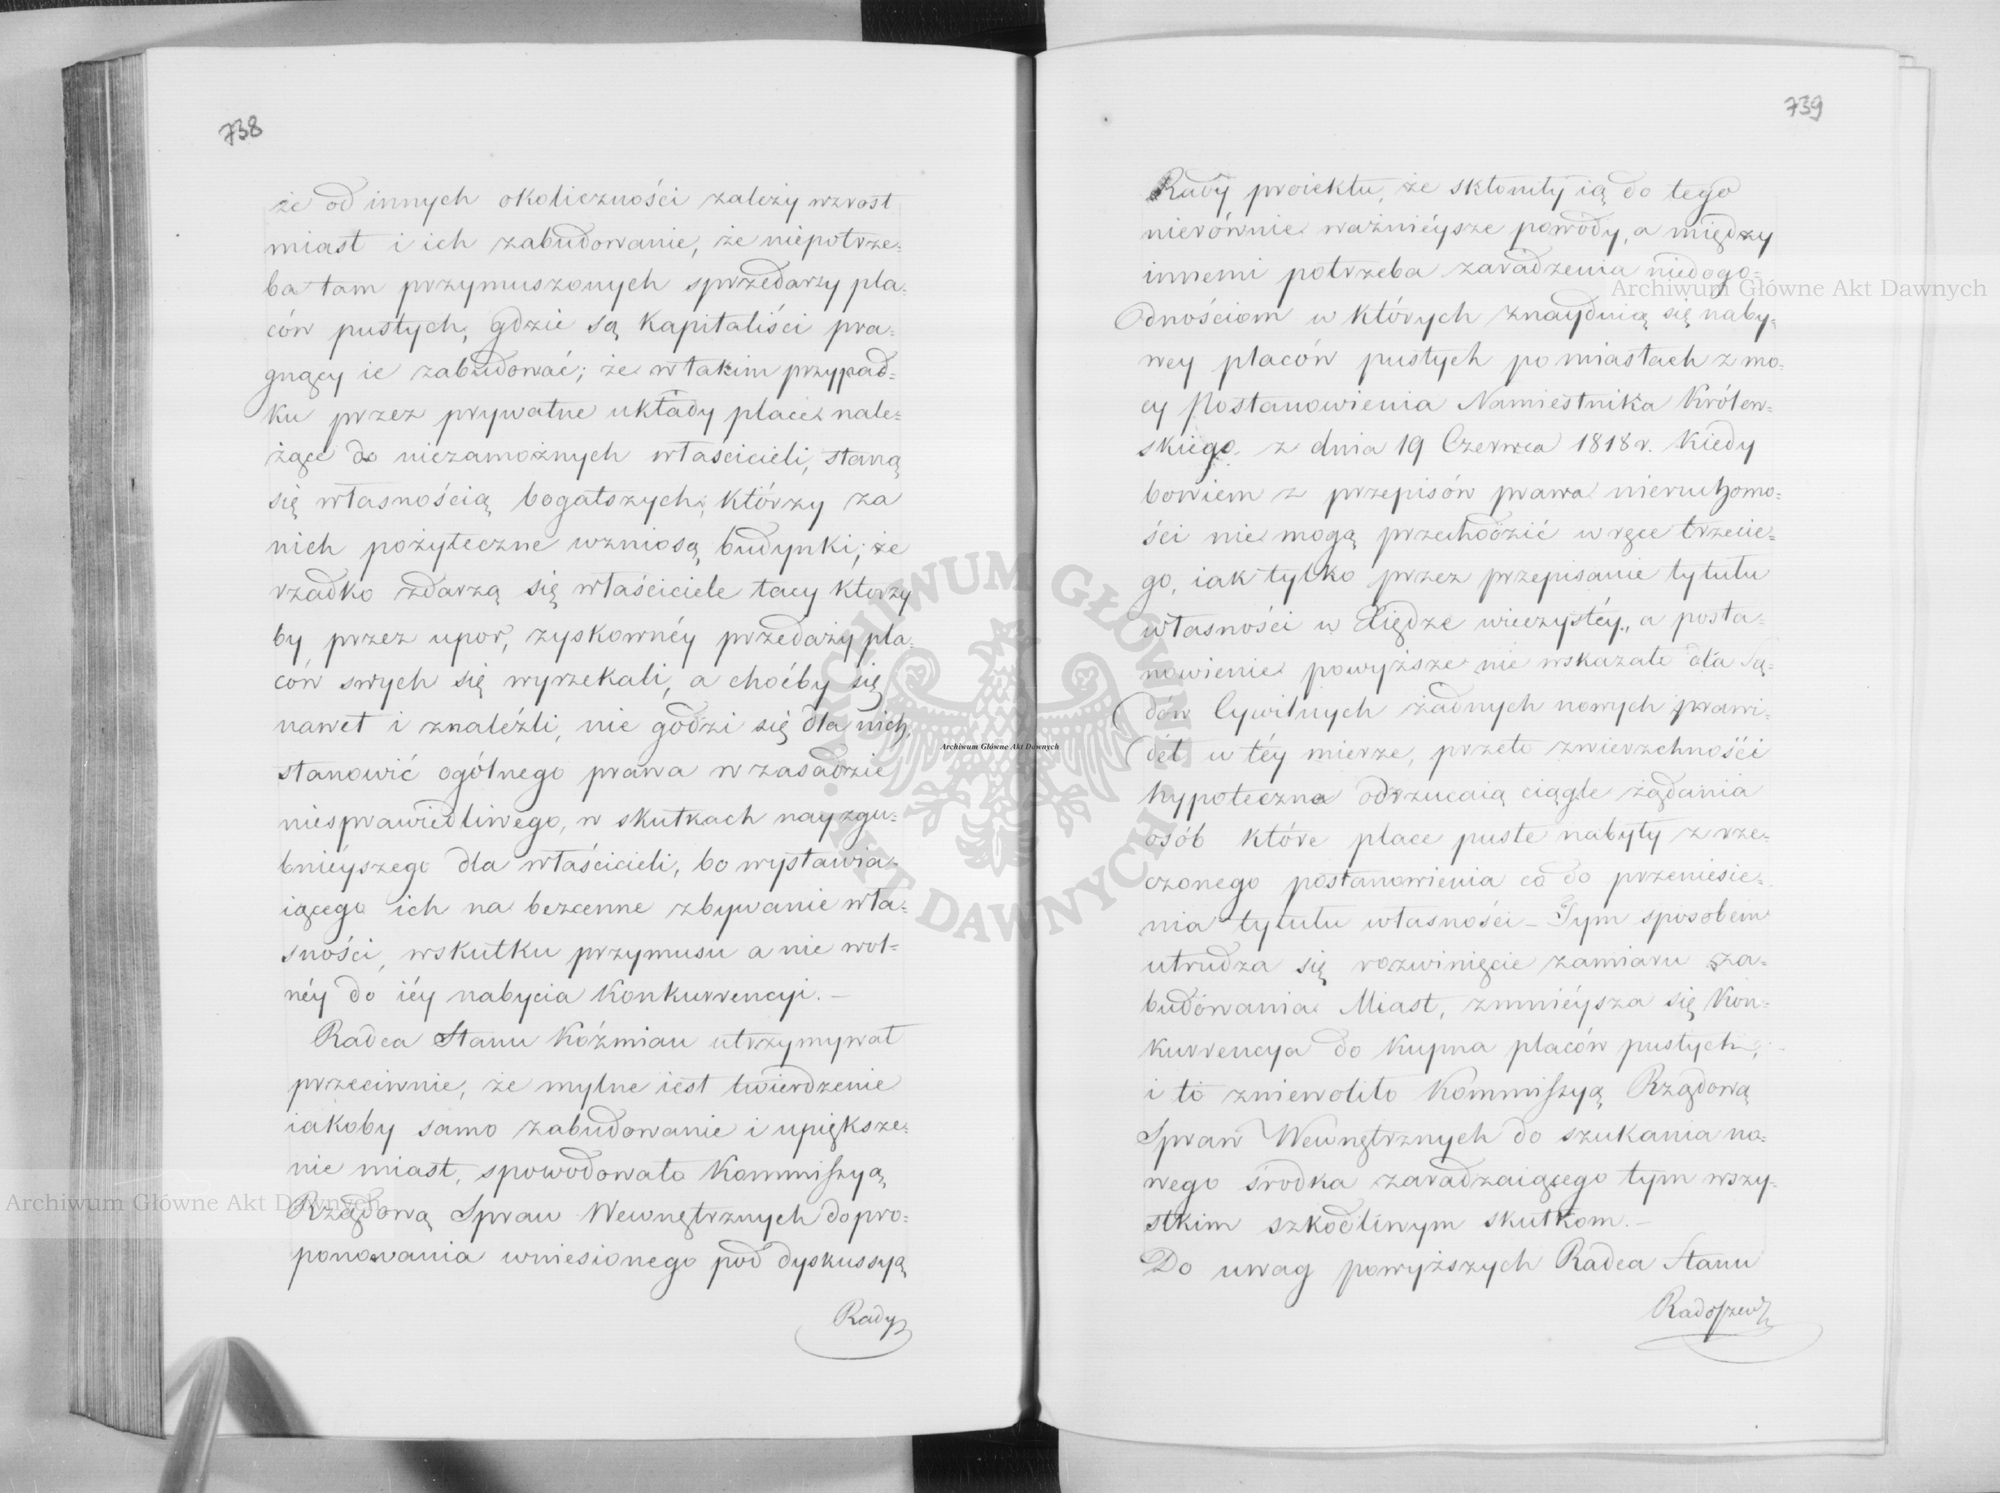 738
że od innych okoliczności zależy wzrost
miast i ich zabudowanie, że niepotrze=
ba tam przymuszonych sprzedarzy pla=
ców pustych, gdzie są Kapitaliści pra=
gnący ie zabudować; że w takim przypad=
ku przez prywatne układy place nale=
żące do niezamożnych właścicieli, staną
się własnością bogatszych, którzy za
nich pożyteczne wzniosą budynki; że
rzadko zdarzą się właściciele tacy ktorzy
by przez upor, zyskownéy przedaży pla=
ców swych się wyrzekali, a choćby się
nawet i znaleźli, nie godzi się dla nich,
stanowić ogólnego prawa w zasadzie
niesprawiedliwego, w skutkach nayzgu=
bnieyszego dla właścicieli, bo wystawia=
iącego ich na bezcenne zbywanie wła=
sności, wskutku przymusu a nie wol=
néy do iéy nabycia Konkurrencyi. —
Radca Stanu Koźmian utrzymywał
przeciwnie, że mylne iest twierdzenie
iakoby samo zabudowanie i upiększe=
nie miast, spowodowało Kommissyą
Rządową Spraw Wewnętrznych do pro=
ponowania wniesionego pod dyskussyą
Rady
739
Rady proiektu, że skłoniły ią do tego
nierównie ważnieysze powody, a między
innemi potrzeba zaradzenia niedogo=
dnościom w których znayduią się naby=
wcy placów pustych po miastach z mo=
cy Postanowienia Namiestnika Królew=
skiego z dnia 19 Czerwca 1818 r. Kiedy
bowiem z przepisów prawa nieruchomo=
ści nie mogą przechodzić w ręce trzecie=
go, iak tylko przez przepisanie tytułu
własności w Xiędze wieczystéy, a posta=
nowienie powyższe nie wskazało dla Są=
dów Cywilnych żadnych nowych prawi=
deł w téy mierze, przeto zwierzchności
hypoteczne odrzucaią ciągle żądania
osób które place puste nabyły z rze=
czonego postanowienia co do przeniesie=
nia tytułu własności – Tym sposobem
utrudza się rozwinięcie zamiaru za=
budowania Miast, zmnieysza się Kon=
kurrencya do kupna placów pustych,
i to zniewoliło Kommissyą Rządową
Spraw Wewnętrznych do szukania no=
wego środka zaradzaiącego tym wszy=
stkim szkodliwym skutkom. —
Do uwag powyższych Radca Stanu
Radoszew
Archiwum Główne Akt Dawnych
Archiwum Główne Akt Dawnych
Archiwum Główne Akt Dawnych
ARCHIWUM GŁÓWNE AKT DAWNYCH